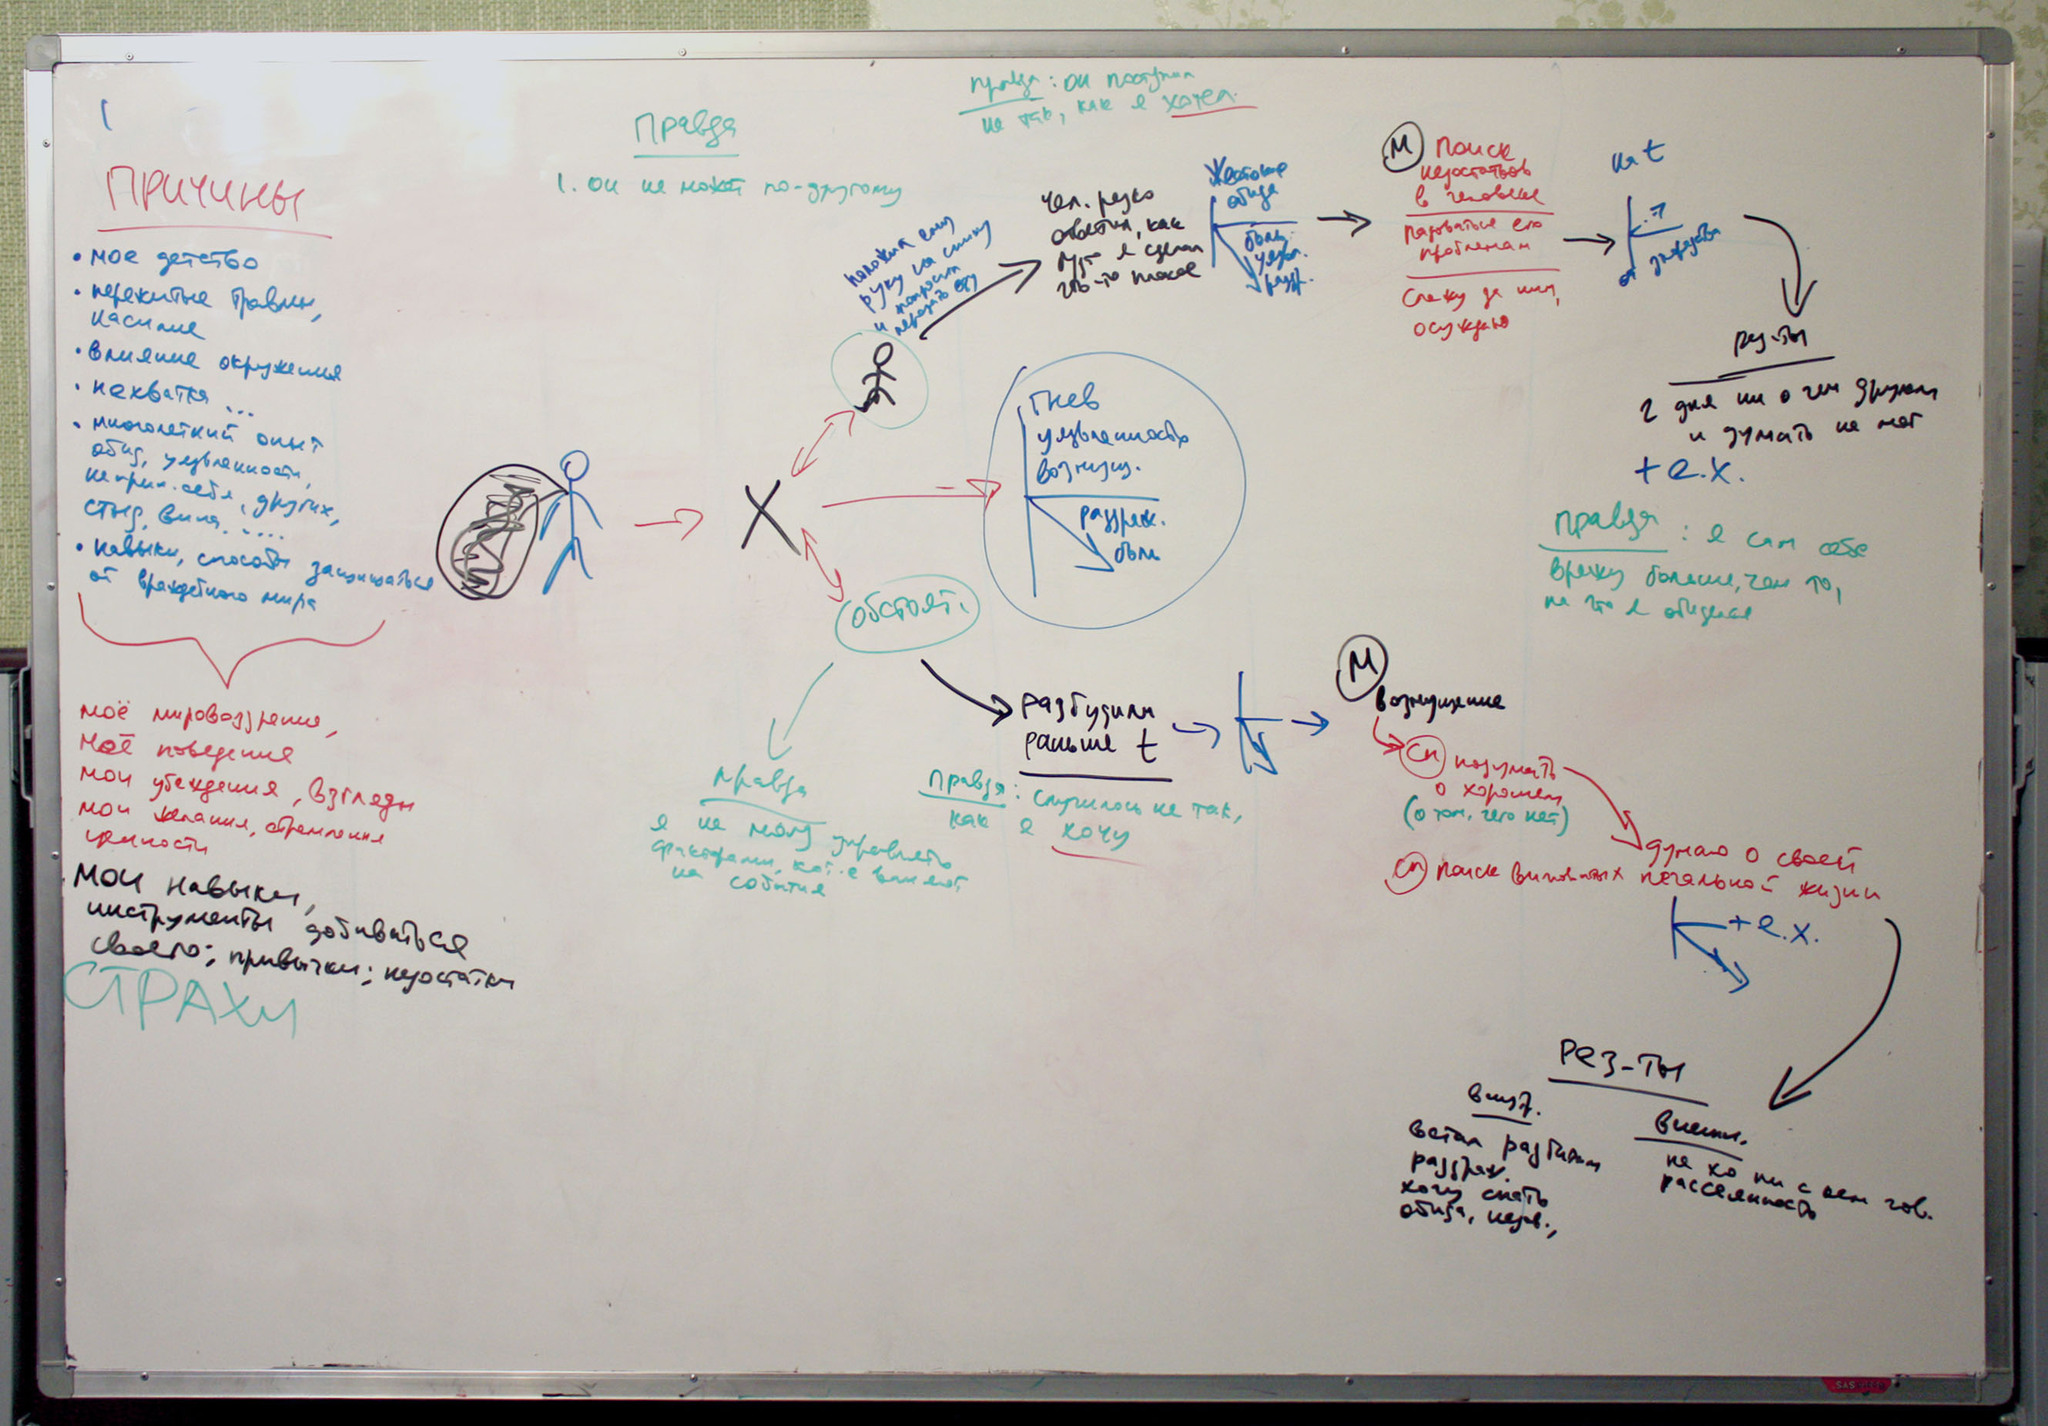 ПРИЧИНЫ
• мое детство
• пережитые травмы,
насилие
• влияние окружения
• нехватка ...
• многолетний опыт
обид, уязвленности,
неприн. себя, других,
стыд, вина.....
• навыки, способы защищаться
от враждебного мира
моё мировоззрение,
моё поведение
мои убеждения, взгляды
мои желания, стремления
ценности
мои навыки,
инструменты добиваться
своего; привычки; недостатки
СТРАХИ
Правда
1. он не может по-другому
правда: он поступил
не так, как я хотел.
положил ему
руку на спину
и попросил
передать еду
чел. резко
ответил, как
будто я сделал
что-то плохое
Жестокая
обида
боль
уязвл.
раздр.
М
Поиск
недостатков
в человеке
радоваться его
проблемам
слежу за ним,
осуждаю
на t
от злорадства
рез-ты
2 дня ни о чем другом
и думать не мог
+ е.х.
Правда : я сам себе
врежу больше, чем то,
на что я обиделся
X
гнев
уязвленность
возмущ.
раздраж.
боль
обстоят.
правда
я не могу управлять
факторами, кот-е влияют
на события
разбудили
раньше t
правда: случилось не так,
как я хочу
М
возмущение
СП подумать
о хорошем
(о том, чего нет)
думаю о своей
печальной жизни
СП поиск виноватых
+ е.х.
рез-ты
внут.
встал разбитым
раздраж.
хочу спать
обида, нерв.,
внешн.
не хо ни с кем гов.
рассеянность
SAS